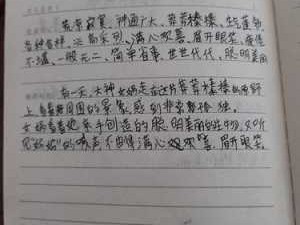 荒凉寂寞、神通广大、莽莽榛榛、生气蓬勃
各种各样、兴高采烈、满心欢喜、眉开眼笑、疲倦
不堪、一般无二、简单省事、世世代代、聪明美丽
有一天，大神女娲走在这片莽莽榛榛的原野
上，看看周围的景象，感到非常孤独。
女娲看着她亲手创造的聪明美丽的生物，又听
见“妈妈”的喊声，不由得满心欢喜，眉开眼笑。